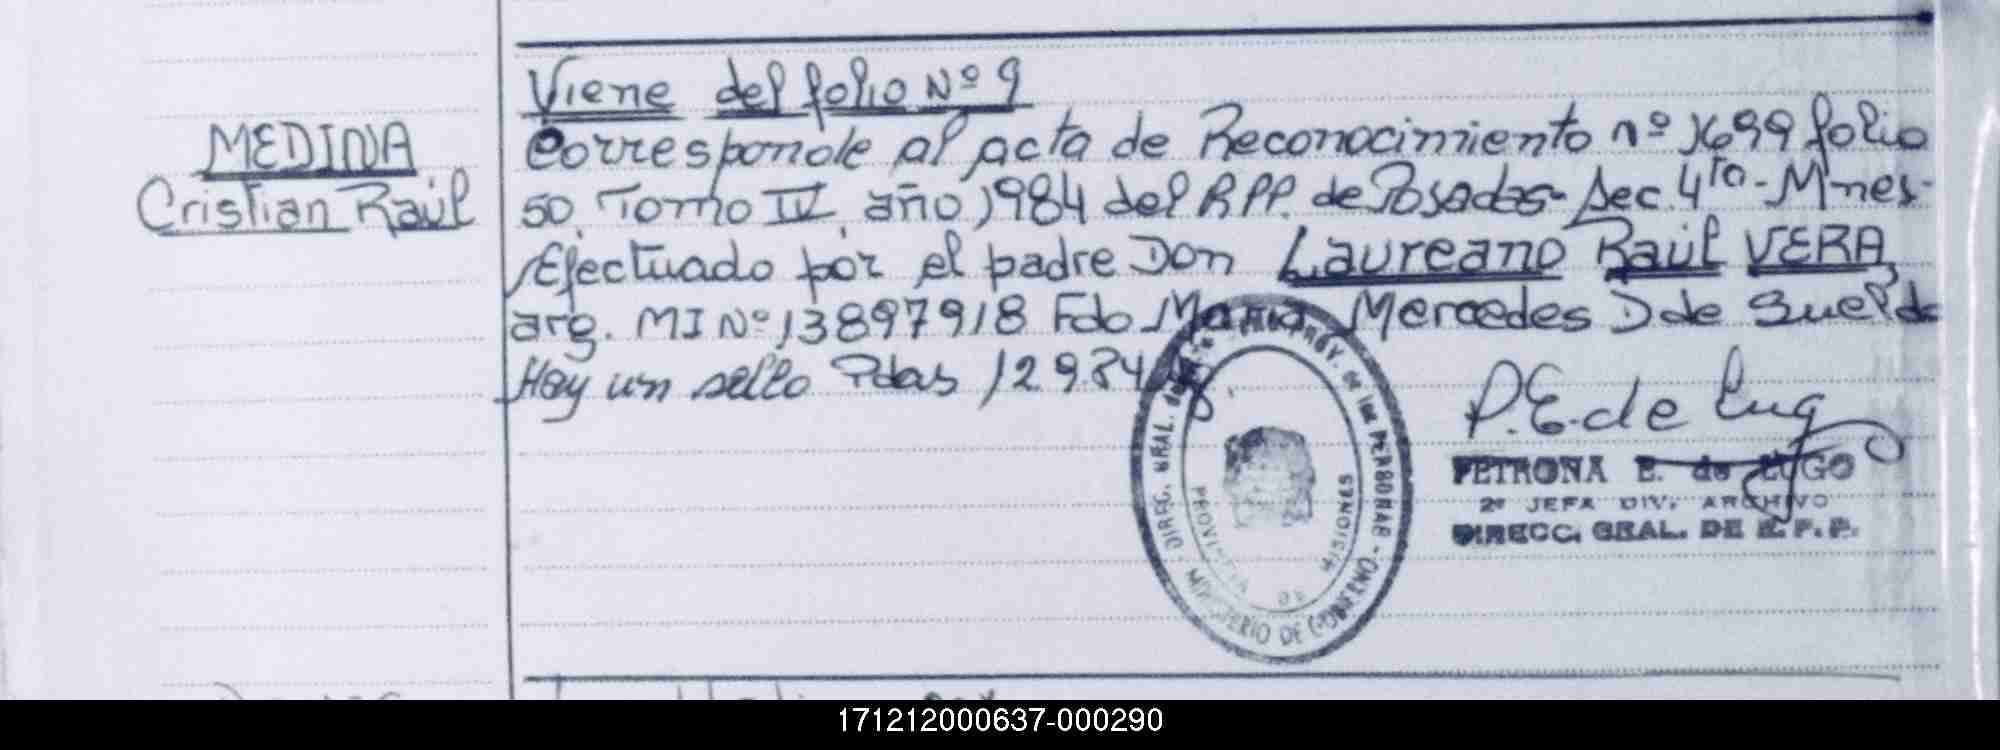 Viene del folio Nº 9
MEDINA
Cristian Raúl
Corresponde al acta de Reconocimiento nº 1699 folio
50 Tomo IV año 1984 del R.P.P. de Posadas - Sec. 4to - Mnes -
Efectuado por el padre Don Laureano Raúl VERA
arg. MI Nº 13897918 Fdo Maria Mercedes D de Suelde
Hay un sello Pdas 12 9.84
P.E. de Lug
PETRONA E. de LUGO
2º JEFA DIV. ARCHIVO
DIRECC. GRAL. DE R.P.P.
DIREC. GRAL. de las PERSONAS - MINISTERIO DE GOBIERNO
PROVINCIA DE MISIONES
171212000637-000290